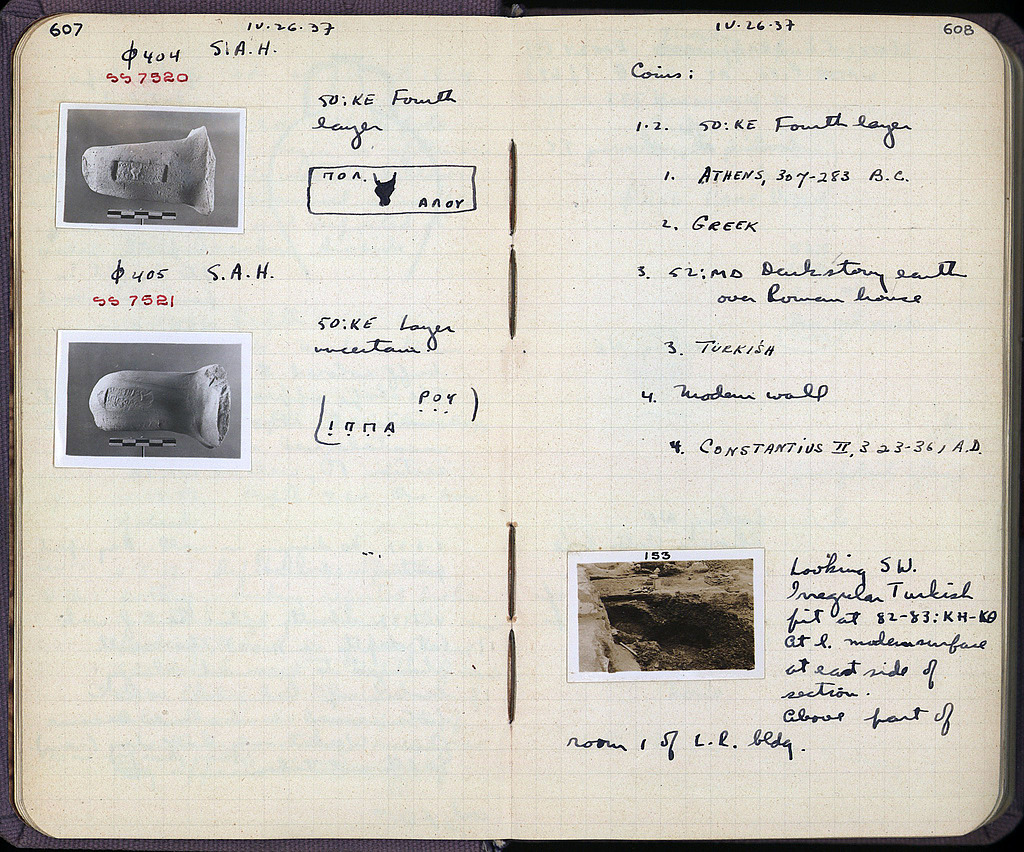 607
IV.26.37
Φ404 S.A.H.
SS 7520
50:KE Fourth
layer
ΠΟΛ.
ΑΛΟΥ
Φ405 S.A.H.
SS 7521
50:KE Layer
uncertain.
ΡΟΥ
ΙΠΠΑ
IV.26.37
608
Coins:
1.2. 50:KE Fourth layer
1. ATHENS, 307-283 B.C.
2. GREEK
3. 52:MD Dark stony earth
over Roman house
3. TURKISH
4. Modern wall
4. CONSTANTIUS II, 323-361 A.D.
153
Looking SW.
Irregular Turkish
pit at 82-83:KH-KΘ
At l. modern surface
at east side of
section.
Above part of
room 1 of L.R. bldg.